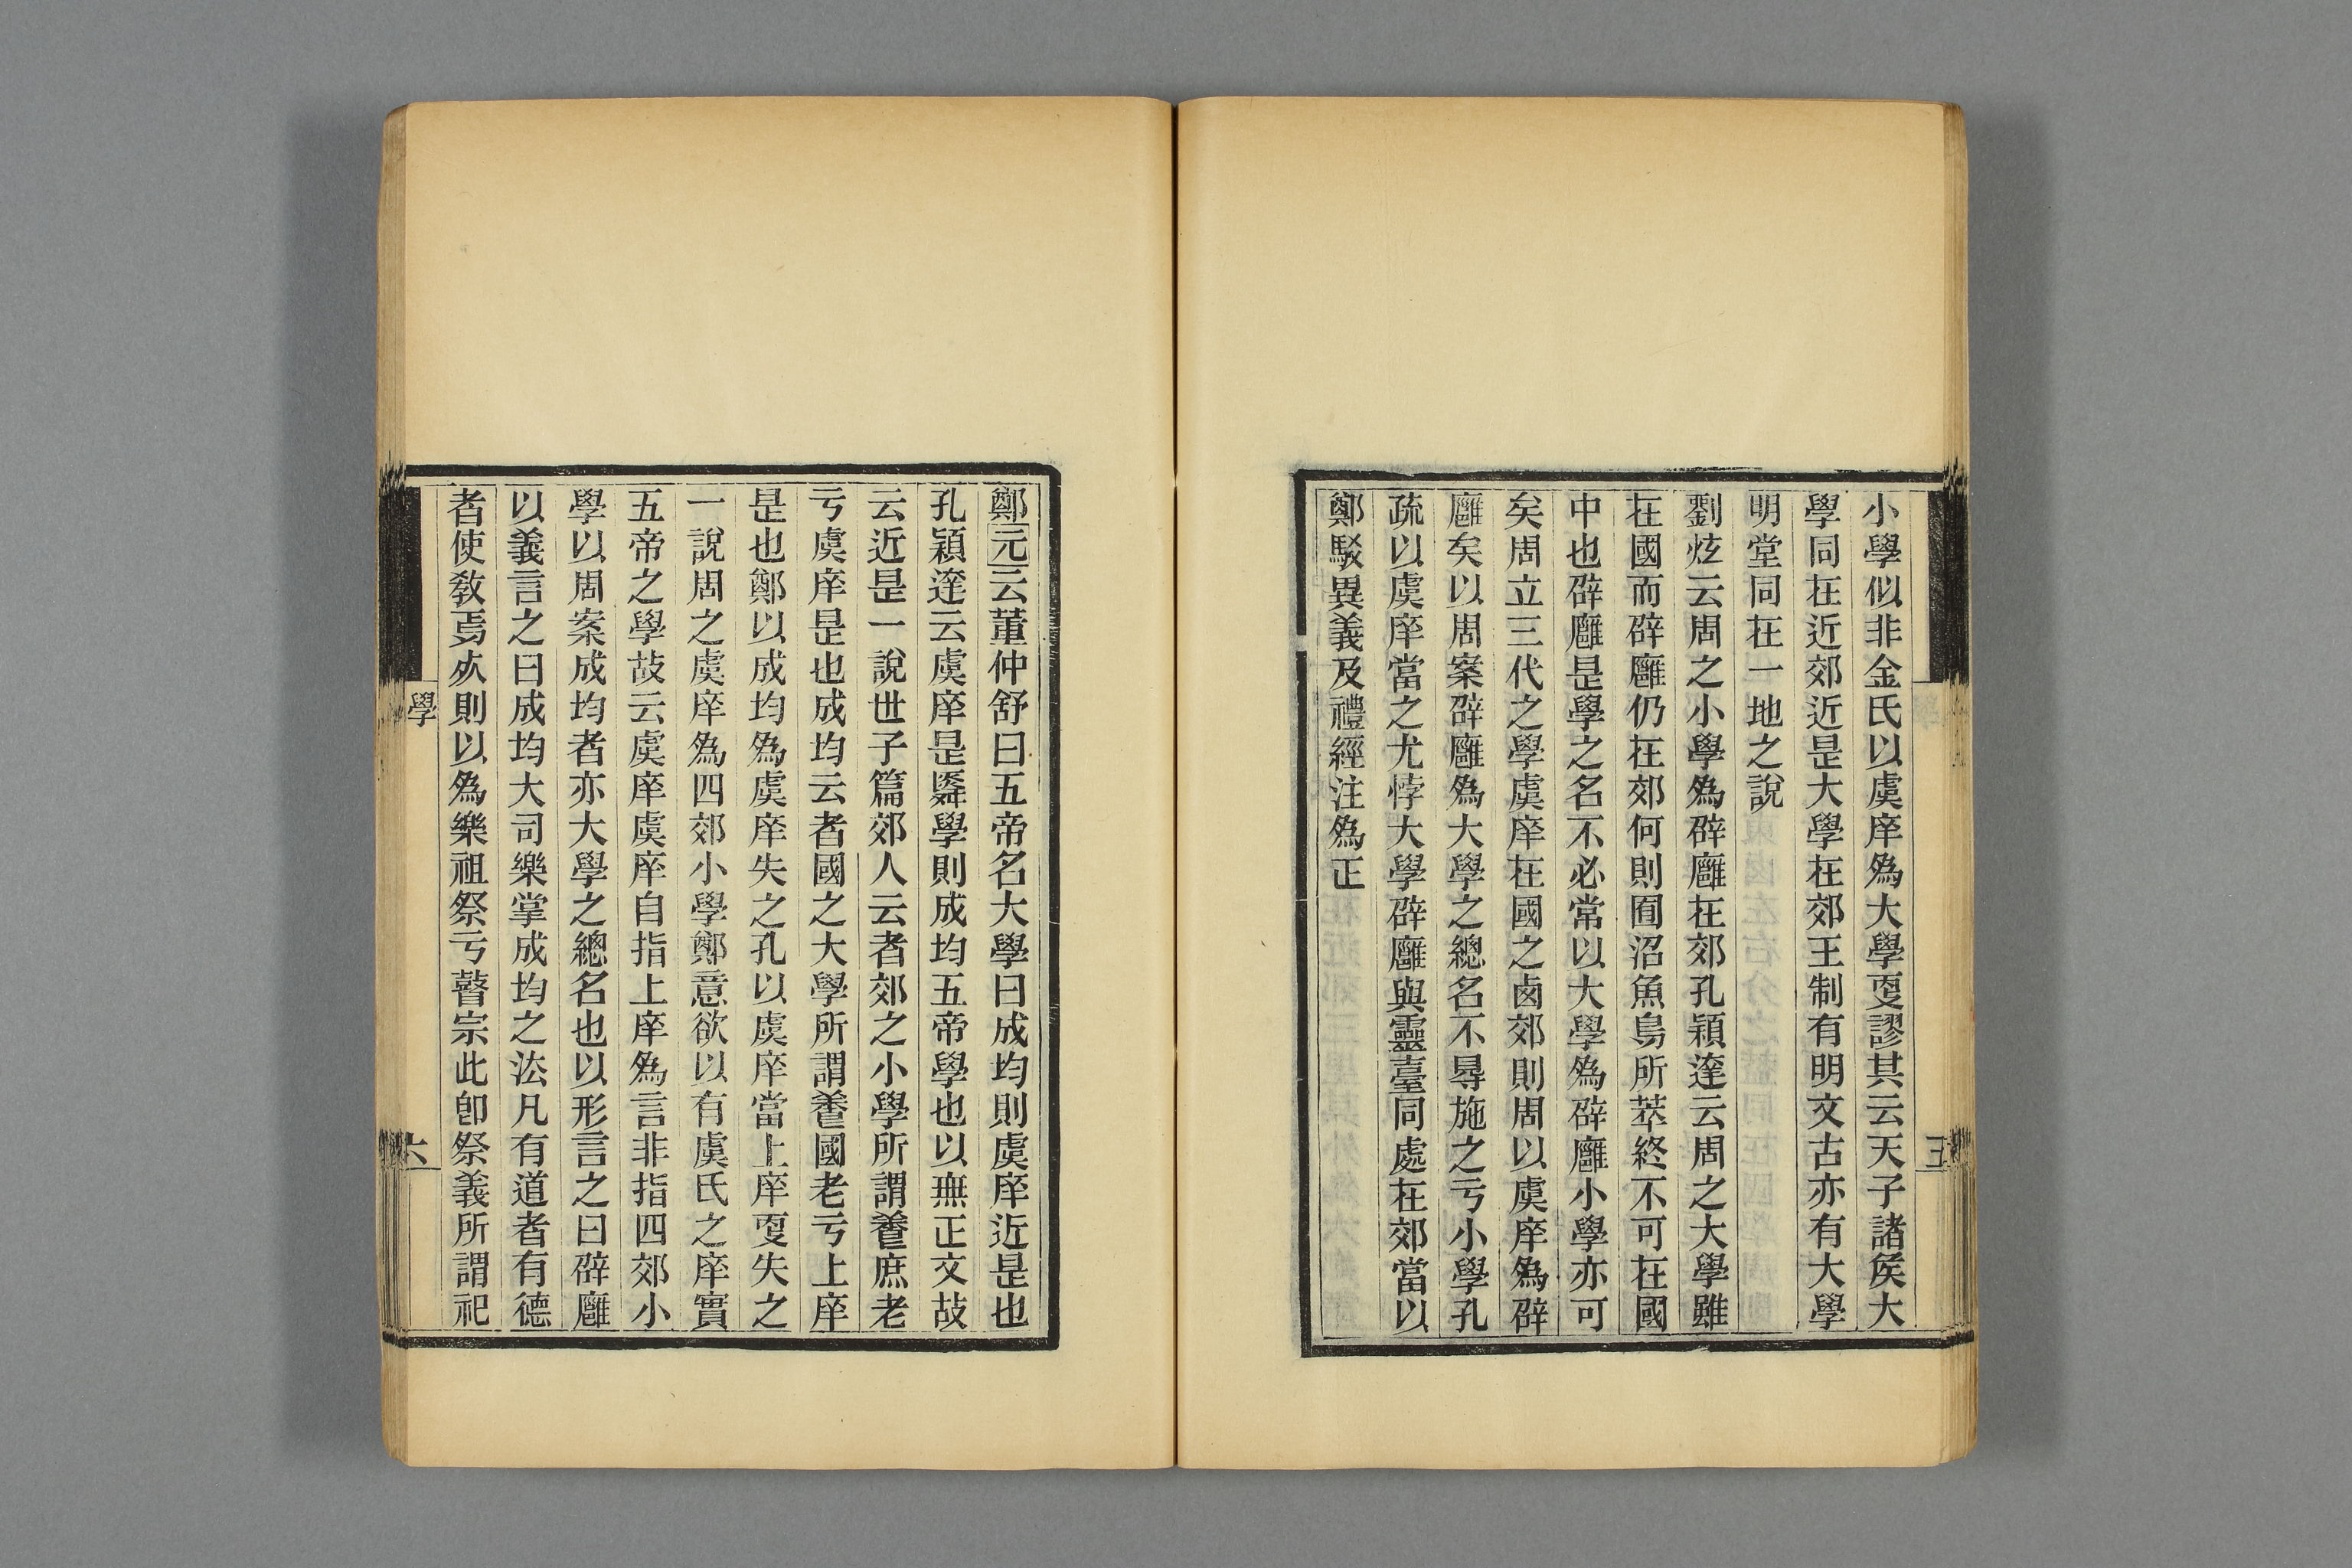 小學似非金氏以虞庠爲大學𠭍謬其云天子諸矦大
學同在近郊近是大學在郊王制有明文古亦有大學
明堂同在一地之說
劉炫云周之小學爲辟廱在郊孔穎達云周之大學雖
在國而辟廱仍在郊何則囿沼魚鳥所萃終不可在國
中也辟廱是學之名不必常以大學爲辟廱小學亦可
矣周立三代之學虞庠在國之㢴郊則周以虞庠爲辟
廱矣以周案辟廱爲大學之總名不㝵施之亏小學孔
疏以虞庠當之尤悖大學辟廱與靈臺同處在郊當以
鄭駁異義及禮經注爲正
五
鄭元云董仲舒曰五帝名大學曰成均則虞庠近是也
孔穎達云虞庠是䑞學則成均五帝學也以無正文故
云近是一說世子篇郊人云者郊之小學所謂養庶老
亏虞庠是也成均云者國之大學所謂養國老亏上庠
是也鄭以成均爲虞庠失之孔以虞庠當上庠𠭍失之
一說周之虞庠爲四郊小學鄭意欲以有虞氏之庠實
五帝之學故云虞庠虞庠自指上庠爲言非指四郊小
學以周案成均者亦大學之總名也以形言之曰辟廱
以義言之曰成均大司樂掌成均之法凡有道者有德
者使教焉𣦸則以爲樂祖祭亏瞽宗此卽祭義所謂祀
學
六